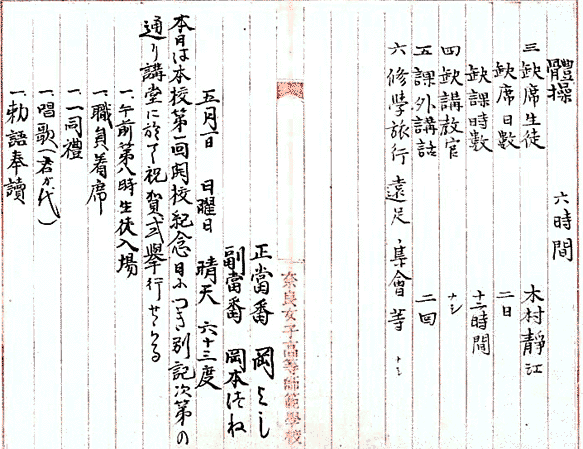 體操 六時間
三 缺席生徒 木村靜江
缺席日數 二日
缺課時數 十二時間
四 缺講教官 ナシ
五 課外講話 二回
六 修學旅行 遠足 集會 等 ナシ
奈良女子高等師範學校
正當番 岡よし
副當番 岡本つね
五月一日 日曜日 晴天 六十三度
本日は本校第一回開校紀念日につき別記次第の
通り講堂に於て祝賀式擧行せらる
一、午前第八時生徒入場
一、職員着席
一、一同禮
一、唱歌(君が代)
一、勅語奉讀